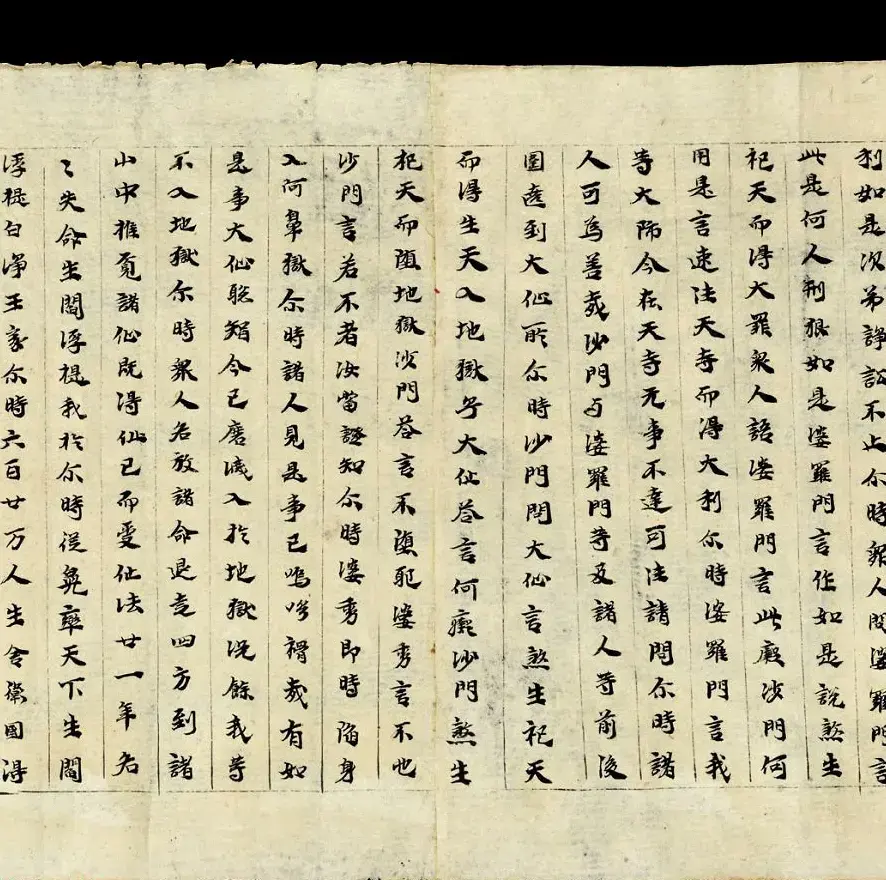 利如是次苐諍訟不止尒時衆人問婆羅門言
此是何人刑狠如是婆羅門言作如是說煞生
祀天而得大罪衆人語婆羅門言此癡沙門何
用是言速往天寺而得大利尒時婆羅門言我
等大師今在天寺无事不達可往請問尒時諸
人可為善哉沙門与婆羅門等及諸人等前後
圍遶到大仙所尒時沙門問大仙言煞生祀天
而得生天入地獄乎大仙荅言何癡沙門煞生
祀天而墮地獄沙門荅言不墮耶婆秀言不也
沙門言若不者汝當證知尒時婆秀即時陷身
入阿鼻獄尒時諸人見是事已嗚呼禍哉有如
是事大仙聡智今已磨滅入於地獄況餘我等
不入地獄尒時衆人各放諸命退走四方到諸
山中推覓諸仙既得仙已而受仙法廿一年各
〻失命生閻浮提我於尒時從兜率天下生閻
浮提白淨王家尒時六百廿万人生舍衛國得